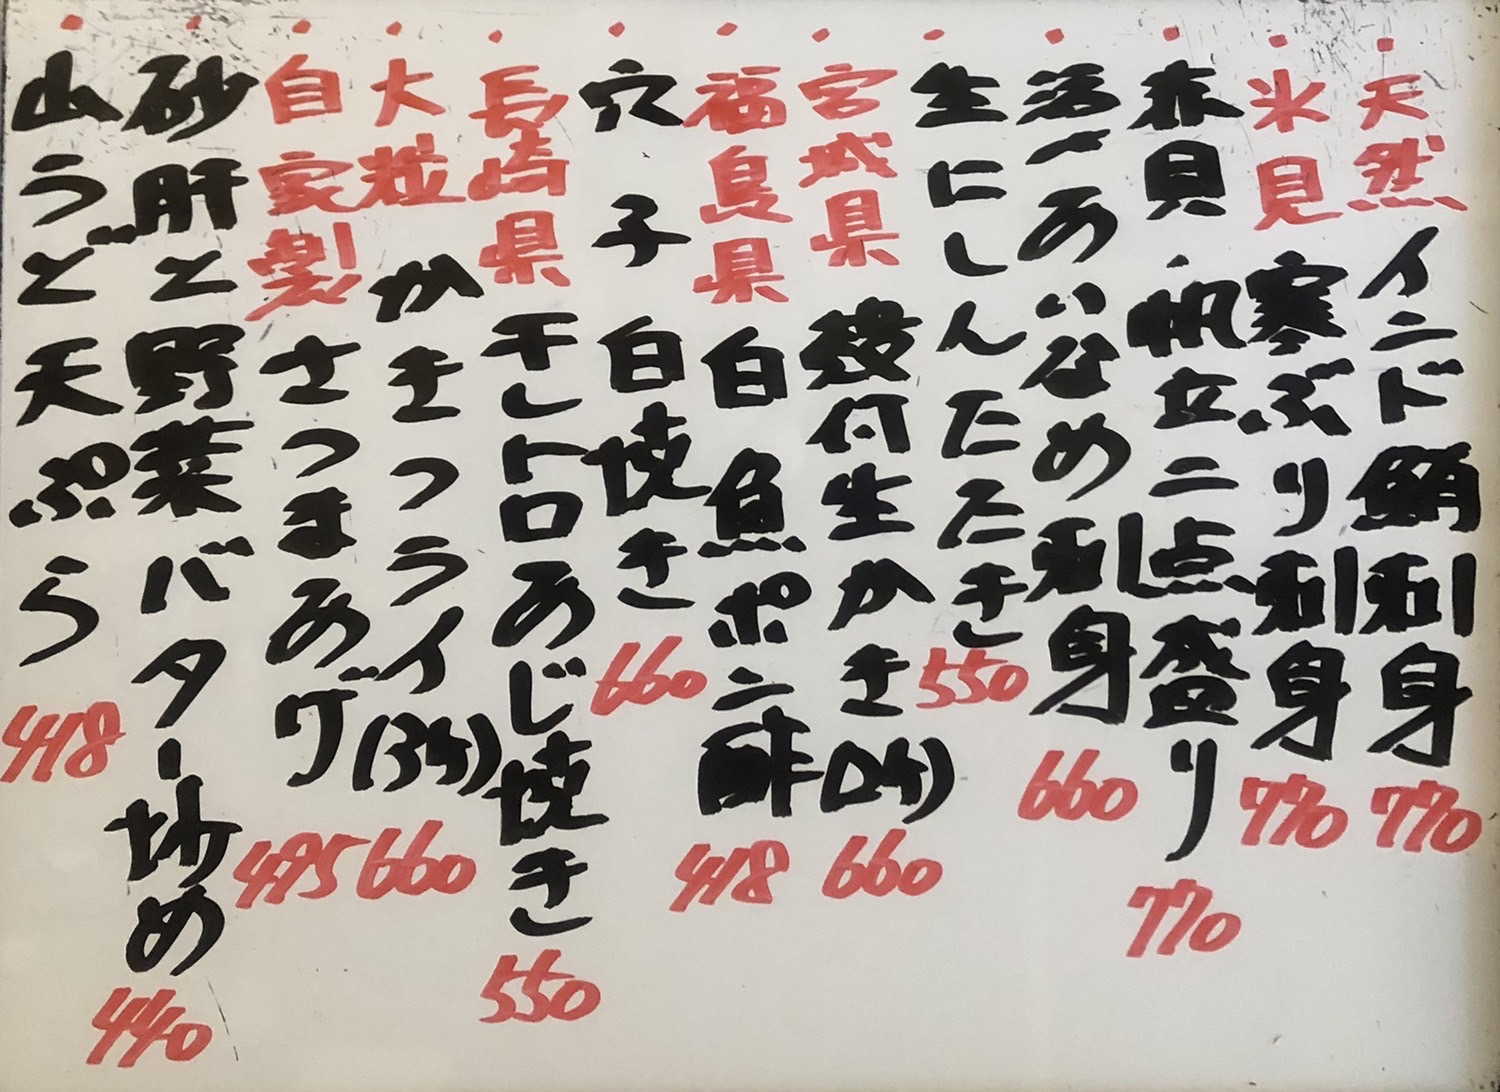 天然インド鮪刺身 770
氷見寒ぶり刺身 770
赤貝・帆立二点盛り 770
活〆あいなめ刺身 660
生にしんたたき 550
宮城県殻付生かき(2ケ) 660
福島県白魚ポン酢 418
穴子白焼き 660
長崎県干しトロあじ焼き 550
大粒かきフライ(3ケ) 660
自家製さつまあげ 495
砂肝と野菜バター炒め 440
山うど天ぷら 418